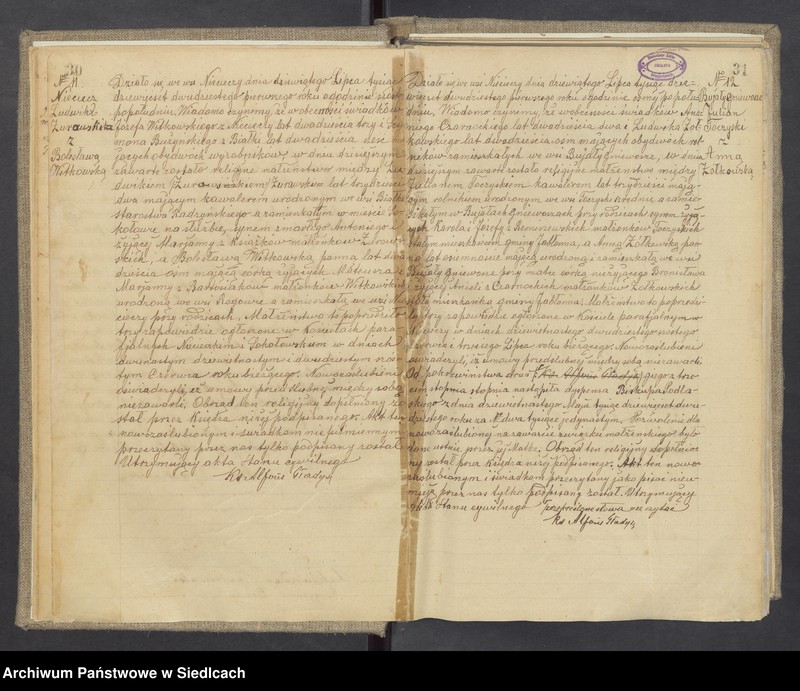 30
№ 11
Nieciecz
Ludwik
Żurawski
z
Bolesławą
Witkowską
Działo się we wsi Niecieczy dnia dziewiątego Lipca tysiąc
dziewięćset dwudziestego pierwszego roku o godzinie
popołudniu. Wiadomo czynimy, że w obecności świadków
Józefa Witkowskiego z Niecieczy lat dwadzieścia trzy i Szy-
mona Burzyńskiego z Białki lat dwadzieścia
jących obydwóch wyrobników w dniu dzisiejszym
zawarte zostało religijne małżeństwo między Lu-
dwikiem Żurawskim lat trzydzieści
dwa mającym kawalerem urodzonym we wsi Białka
starostwa Radzyńskiego a zamieszkałym w mieście So-
kołowie na służbie, synem zmarłego Antoniego i
żyjącej Marjanny z Książków małżonków Żuraw-
skich, a Bolesławą Witkowską, panną lat dwa-
dzieścia osm mającą córką żyjących Mateusza i
Marjanny z Bartosiaków małżonków Witkowskich
urodzoną we wsi Rogowie a zamieszkałą we wsi Nie-
cieczy przy rodzicach. Małżeństwo to poprzedziły
trzy zapowiedzie ogłoszone w Kościołach para-
fjalnych Niecieckim i Sokołowskim w dniach
dwunastym dziewiętnastym i dwudziestym szós-
tym Czerwca roku bieżącego. Nowozaślubieni
oświadczyli, iż umowy przedślubnej między sobą
niezawarli. Obrząd ten religijny dopełniony zo-
stał przez Księdza niżej podpisanego. Akt ten
nowozaślubionym i świadkom nie piśmiennym
przeczytany przez nas tylko podpisany został
Utrzymujący akta stanu cywilnego
Ks. Alfons Gładysz
31
№ 12
Bujały Gniewosze
Juljan
Toczyski
z
Anną
Żółkowską
Działo się we wsi Niecieczy dnia dziewiątego Lipca tysiąc dzie-
więćset dwudziestego pierwszego roku o godzinie osmej po połu-
dniu. Wiadomo czynimy, że w obecności świadków
niego Czarnockiego lat dwadzieścia dwa i Ludwika Żół-
kowskiego lat dwadzieścia osm mających obydwóch rol-
ników zamieszkałych we wsi Bujały Gniewosze, w dniu
dzisiejszym zawarte zostało religijne małżeństwo między
Juljanem Toczyskim kawalerem lat trzydzieści mają-
cym rolnikiem urodzonym we wsi Toczyski średnie, a zamie-
szkałym w Bujałach Gniewoszach przy rodzicach synem żyją-
cych Karola i Józefy z Remiszewskich małżonków Toczyskich
stałym mieszkańcem gminy Jabłonna, a Anną Żółkowską pan-
ną lat osiemnaście mającą urodzoną i zamieszkałą we wsi
Bujały Gniewosze przy matce córką nieżyjącego Bronisława
i żyjącej Anieli z Czarnockich małżonków Żółkowskich
stałą mieszkanką gminy Jabłonna. Małżeństwo to poprzedzi-
ły trzy zapowiedzie ogłoszone w Kościele parafjalnym w
Niecieczy w dniach dziewiętnastego dwudziestego szóstego
Czerwca i trzeciego Lipca roku bieżącego. Nowozaślubieni
oświadczyli, iż umowy przedślubnej między sobą nie zawarli.
Od pokrewieństwa Ks. Alfons Gładysz giego z trze-
cim stopnia stopnia nastąpiła dyspensa Biskupa Podla-
skiego z dnia dziewiętnastego Maja tysiąc dziewięćset dwu-
dziestego roku za № dwa tysiące jedynastym. Pozwolenie dla
nowozaślubionej na zawarcie związku małżeńskiego było
dane ustnie przez jej Matkę. Obrząd ten religijny dopełnio-
ny został przez Księdza niżej podpisanego. Akt ten nowo-
zaślubionym i świadkom przeczytany jako pisać nieu-
miejącym przez nas tylko podpisany został. Utrzymujący
Akta Stanu cywilnego Przekreślone słowa nie czytać
Ks Alfons Gładysz
Archiwum Państwowe w Siedlcach